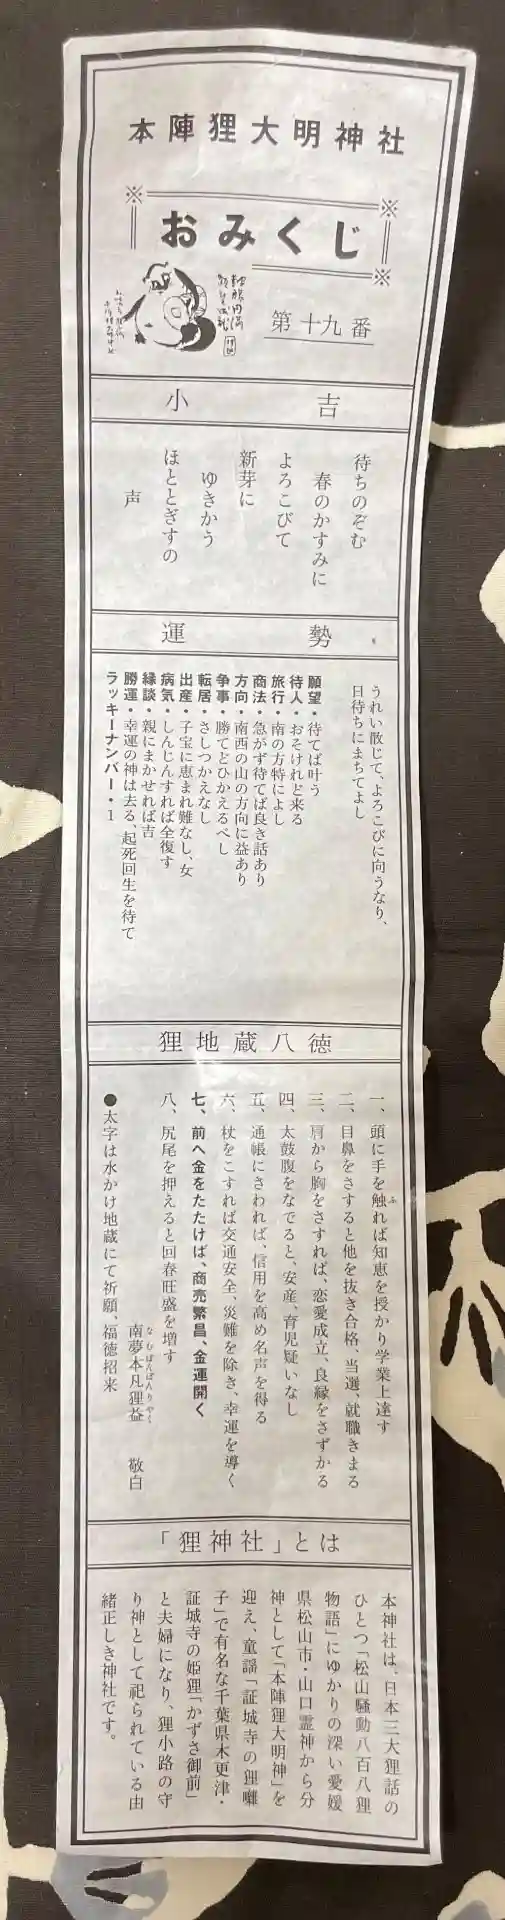 本陣狸大明神社
※ ※
おみくじ
※
第十九番
小吉
待ちのぞむ
春のかすみに
よろこびて
新芽に
ゆきかう
ほととぎすの
声
運勢
うれい散じて、よろこびに向うなり、
日待ちにまちてよし
願望・待てば叶う
待人・おそけれど来る
旅行・南の方特によし
商法・急がず待てば良き話あり
方向・南西の山の方向に益あり
争事・勝てどひかえるべし
転居・さしつかえなし
出産・子宝に恵まれ難なし、女
病気・しんじんすれば全復す
縁談・親にまかせれば吉
勝運・幸運の神は去る、起死回生を待て
ラッキーナンバー・1
狸地蔵八徳
一、頭に手を触れば知恵を授かり学業上達す
ふ
二、目鼻をさすると他を抜き合格、当選、就職きまる
三、肩から胸をさすれば、恋愛成立、良縁をさずかる
四、太鼓腹をなでると、安産、育児疑いなし
五、通帳にさわれば、信用を高め名声を得る
六、杖をこすれば交通安全、災難を除き、幸運を導く
七、前へ金をたたけば、商売繁昌、金運開く
八、尻尾を押えると回春旺盛を増す
南夢本凡狸益 敬白
なむぽんぽんりやく
●太字は水かけ地蔵にて祈願、福徳招来
「狸神社」とは
本神社は、日本三大狸話の
ひとつ「松山騒動八百八狸
物語」にゆかりの深い愛媛
県松山市・山口霊神から分
神として「本陣狸大明神」を
迎え、童謡「証城寺の狸囃
子」で有名な千葉県木更津・
証城寺の姫狸「かずさ御前」
と夫婦になり、狸小路の守
り神として祀られている由
緒正しき神社です。